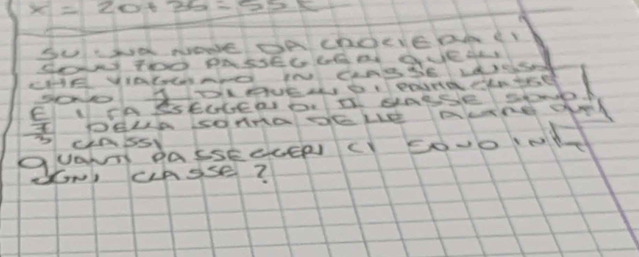 x = 20 + 35 = 55
SU UNA NAVE DA CROCIERA CI
SONO 700 PASSEGGERI QUELLI
CHE VIAGGIANO IN CLASSE LUSSO
SONO DI QUELLI DI PRIMA CLASSE
E I PASSEGGERI DI II CLASSE SONO
DELLA SOMMA DELLE ALTRE DUE
CLASSI
QUANTI PASSEGGERI CI SONO IN
OGNI CLASSE?